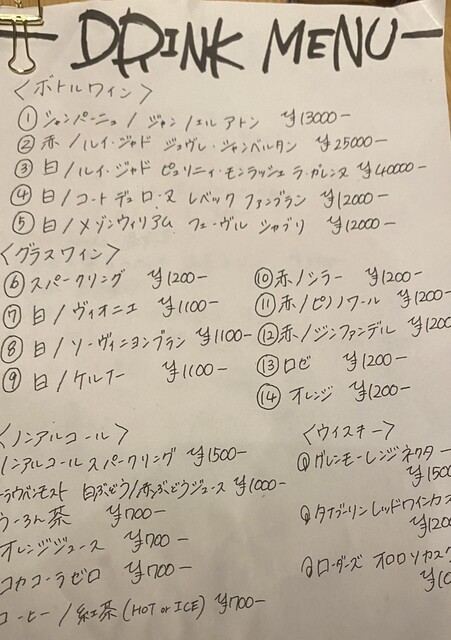 DRINK MENU
〈ボトルワイン〉
① シャンパーニュ / ジャン ノエル アトン ¥13000-
② 赤 / ルイ・ジャド ジュヴレ・シャンベルタン ¥25000-
③ 白 / ルイ・ジャド ピュリニィ・モンラッシェ ラ・ガレンヌ ¥40000-
④ 白 / コート デュ ローヌ レベック ファンブラン ¥12000-
⑤ 白 / メゾンウィリアム フェーヴル シャブリ ¥12000-
〈グラスワイン〉
⑥ スパークリング ¥1200-
⑦ 白 / ヴィオニエ ¥1100-
⑧ 白 / ソーヴィニヨンブラン ¥1100-
⑨ 白 / ケルナー ¥1100-
⑩ 赤 / シラー ¥1200-
⑪ 赤 / ピノノワール ¥1200
⑫ 赤 / ジンファンデル ¥1200
⑬ ロゼ ¥1200-
⑭ オレンジ ¥1200-
〈ノンアルコール〉
ノンアルコール スパークリング ¥1500-
白ぶどう/赤ぶどうジュース ¥1000-
うーろん茶 ¥700-
オレンジジュース ¥700-
コカコーラゼロ ¥700-
コーヒー / 紅茶 (HOT or ICE) ¥700-
〈ウィスキー〉
グレンモーレンジネクター
¥1500
レッドワインカス
¥1200
ローダーズ オロロソカスク